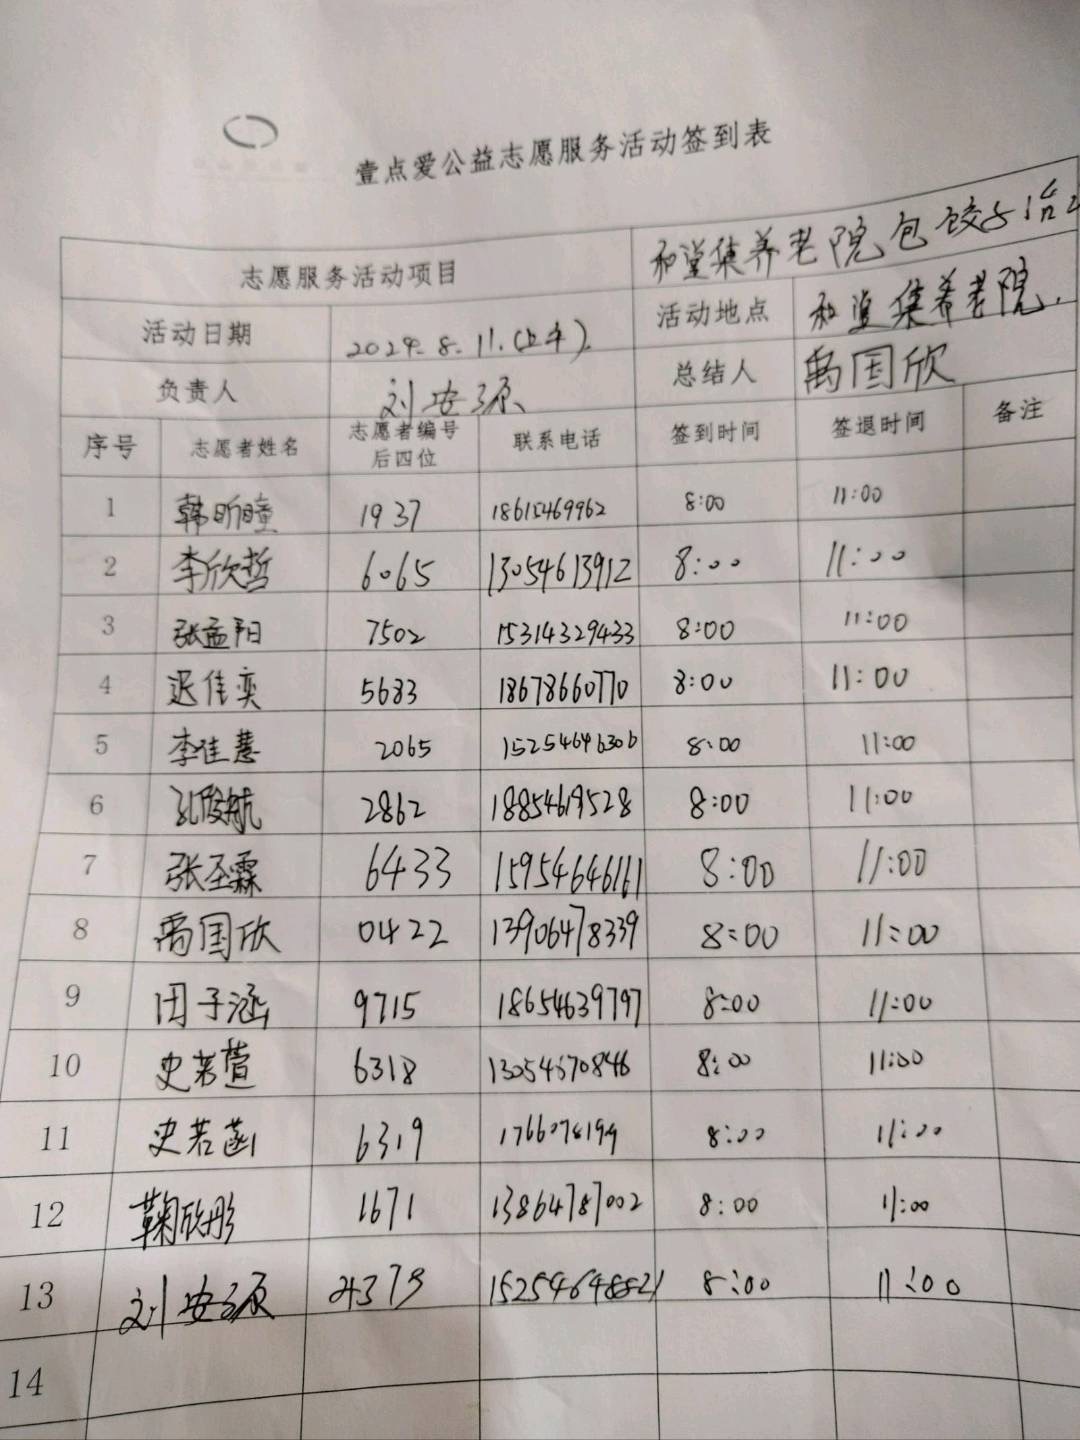 壹点爱公益志愿服务活动签到表
志愿服务活动项目 和谐集养老院包饺子活动
活动日期 2024.8.11.(上午) 活动地点 和谐集养老院.
负责人 刘安源 总结人 禹国欣
序号 志愿者姓名 志愿者编号后四位 联系电话 签到时间 签退时间 备注
1 韩昕瞳 1937 18615469962 8:00 11:00
2 李欣哲 6065 13054613912 8:00 11:00
3 张孟阳 7502 15314329433 8:00 11:00
4 迟佳奕 5683 18678660770 8:00 11:00
5 李佳慧 2065 15254646306 8:00 11:00
6 孔俊航 2862 18854619528 8:00 11:00
7 张圣霖 6433 15954646161 8:00 11:00
8 禹国欣 0422 13906478339 8:00 11:00
9 田子涵 9715 18654639797 8:00 11:00
10 史若萱 6318 13054670846 8:00 11:00
11 史若菡 6319 8:00 11:00
12 鞠欣彤 1671 13864787002 8:00 11:00
13 刘安源 4379 15254648821 8:00 11:00
14